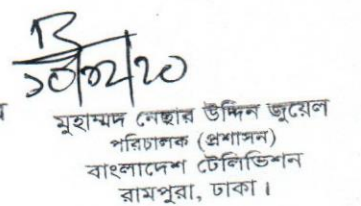 ১০/০২/২০
মুহাম্মদ নেছার উদ্দিন জুয়েল
পরিচালক (প্রশাসন)
বাংলাদেশ টেলিভিশন
রামপুরা, ঢাকা।